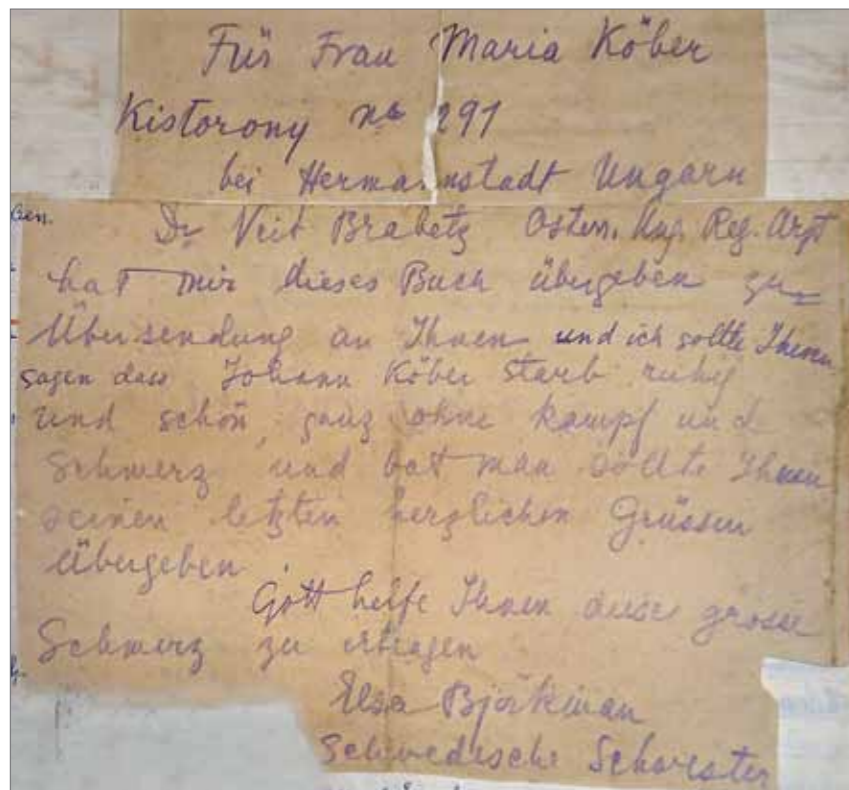 Für Frau Maria Köber
Kistorony no 291
bei Hermannstadt Ungarn
Dr Veit Brabetz Osterr. Ung. Reg. Arzt
hat mir dieses Buch übergeben zur
Übersendung an Ihnen und ich sollte Ihnen
sagen dass Johann Köber starb ruhig
und schön, ganz ohne Kampf und
Schmerz und bat man sollte Ihnen
seinen letzten herzlichen Grüssen
übergeben
Gott helfe Ihnen diese grosse
Schmerz zu ertragen
Elsa Björkman
Schwedische Schwester